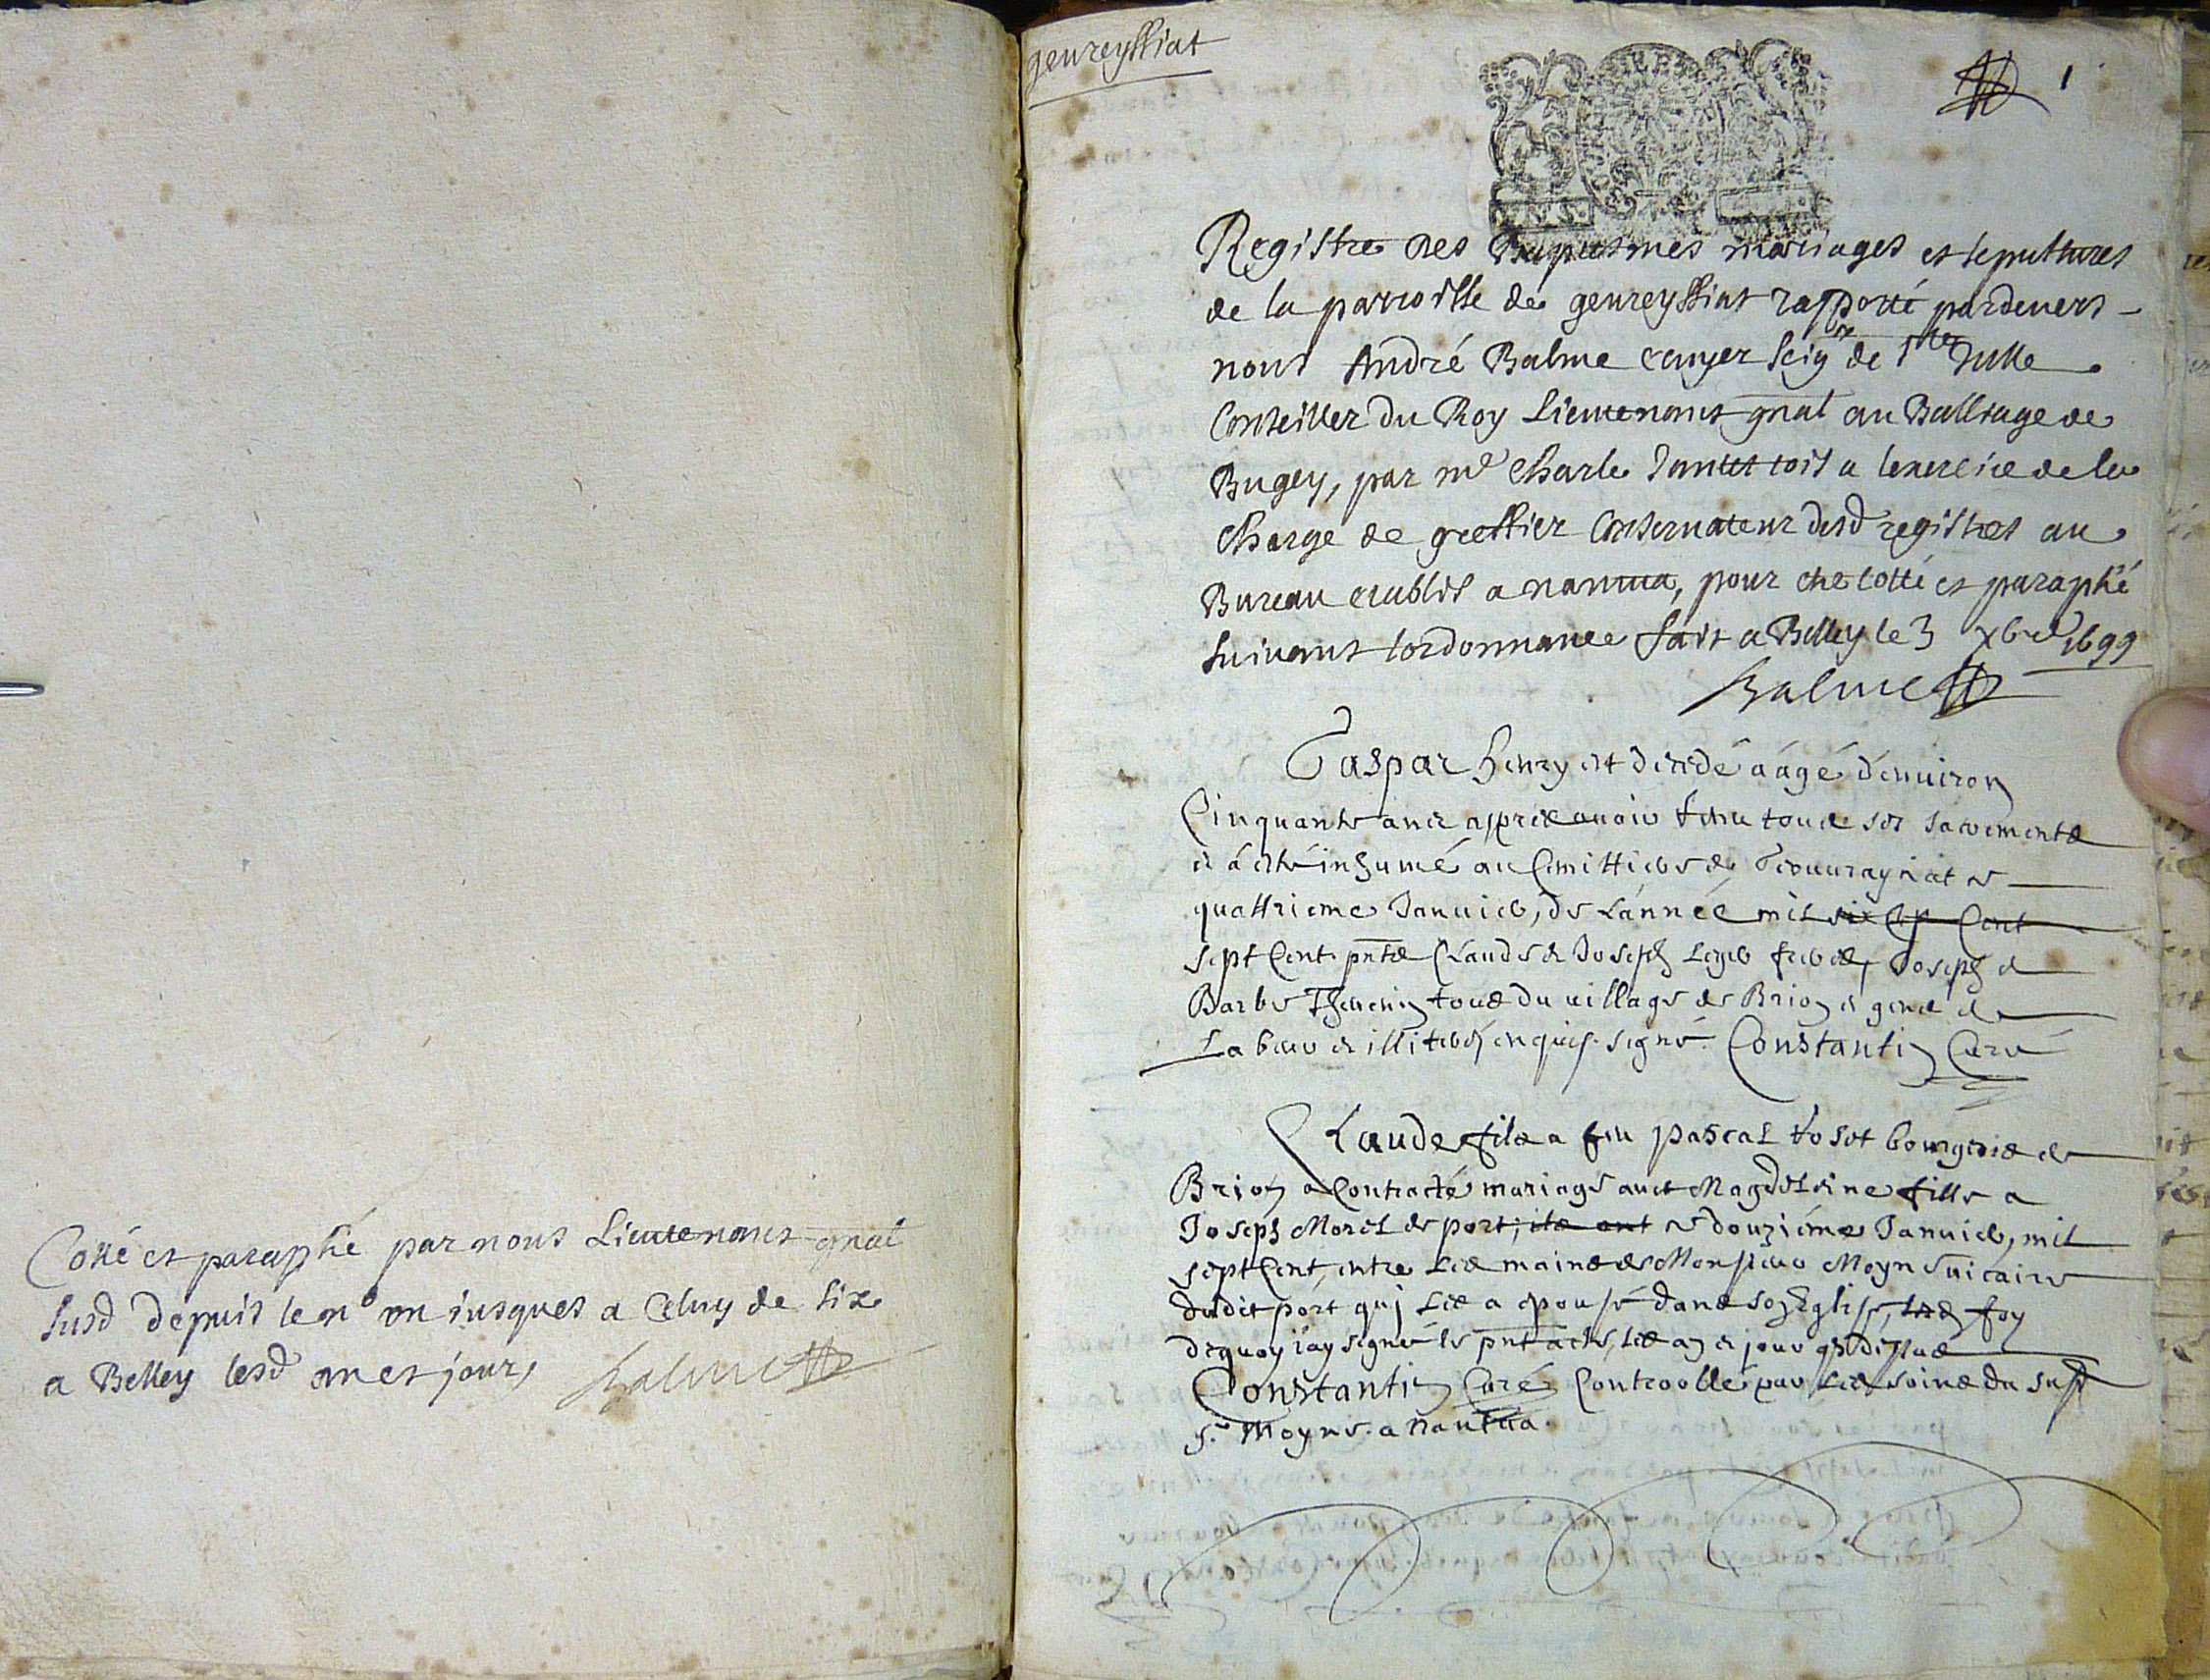 Cotté et paraphé par nous Lieutenant gnal
susd depuis le n° un jusques a Celuy de Six
a Belley lesd an et jour, Balme
geureyssiat
1
Registre des Baptesmes mariages et sepultures
de la parroisse de geureyssiat rapporté pardevers
nous André Balme ecuyer seigr de Ste Julle
Conseiller du Roy Lieutenant gnal au Balliage de
Bugey, par me Charle commis a lexercice de la
Charge de greffier Conservateur desd registres au
Bureau etablis a nantua, pour etre cotté et paraphé
suivant lordonnance fait a Belley le 3 xbre 1699
Balme
Gaspar henry est décédé âagé d'environ
Cinquante ans apres avoir receu tous ses sacremens
et a esté inhumé au Cimittiere de Geovrayssiat le
quattrieme Janvier, de L'année mil six Cent
sept Cent. pnts Claude et Joseph Leger freres, Joseph et
Barbe Thevenin tous du village de Brion et gens de
Labeur et illiterés enquis. signé. Constantin Curé
Claude fils a feu pascal bourgeois de
Brion a Contracté mariage avec Magdeleine fille a
Joseph Morel de port, ils ont le douziéme Janvier, mil
sept Cent, entre Les mains de Monsieur Moyne vicaire
dudit port qui Les a epousé dans son Eglise, en foy
dequoy i'ay signé le pnt acte, les an et jour que dessus
Constantin Curé Controollé par Les soins du susd
sr Moyne. a nantua.